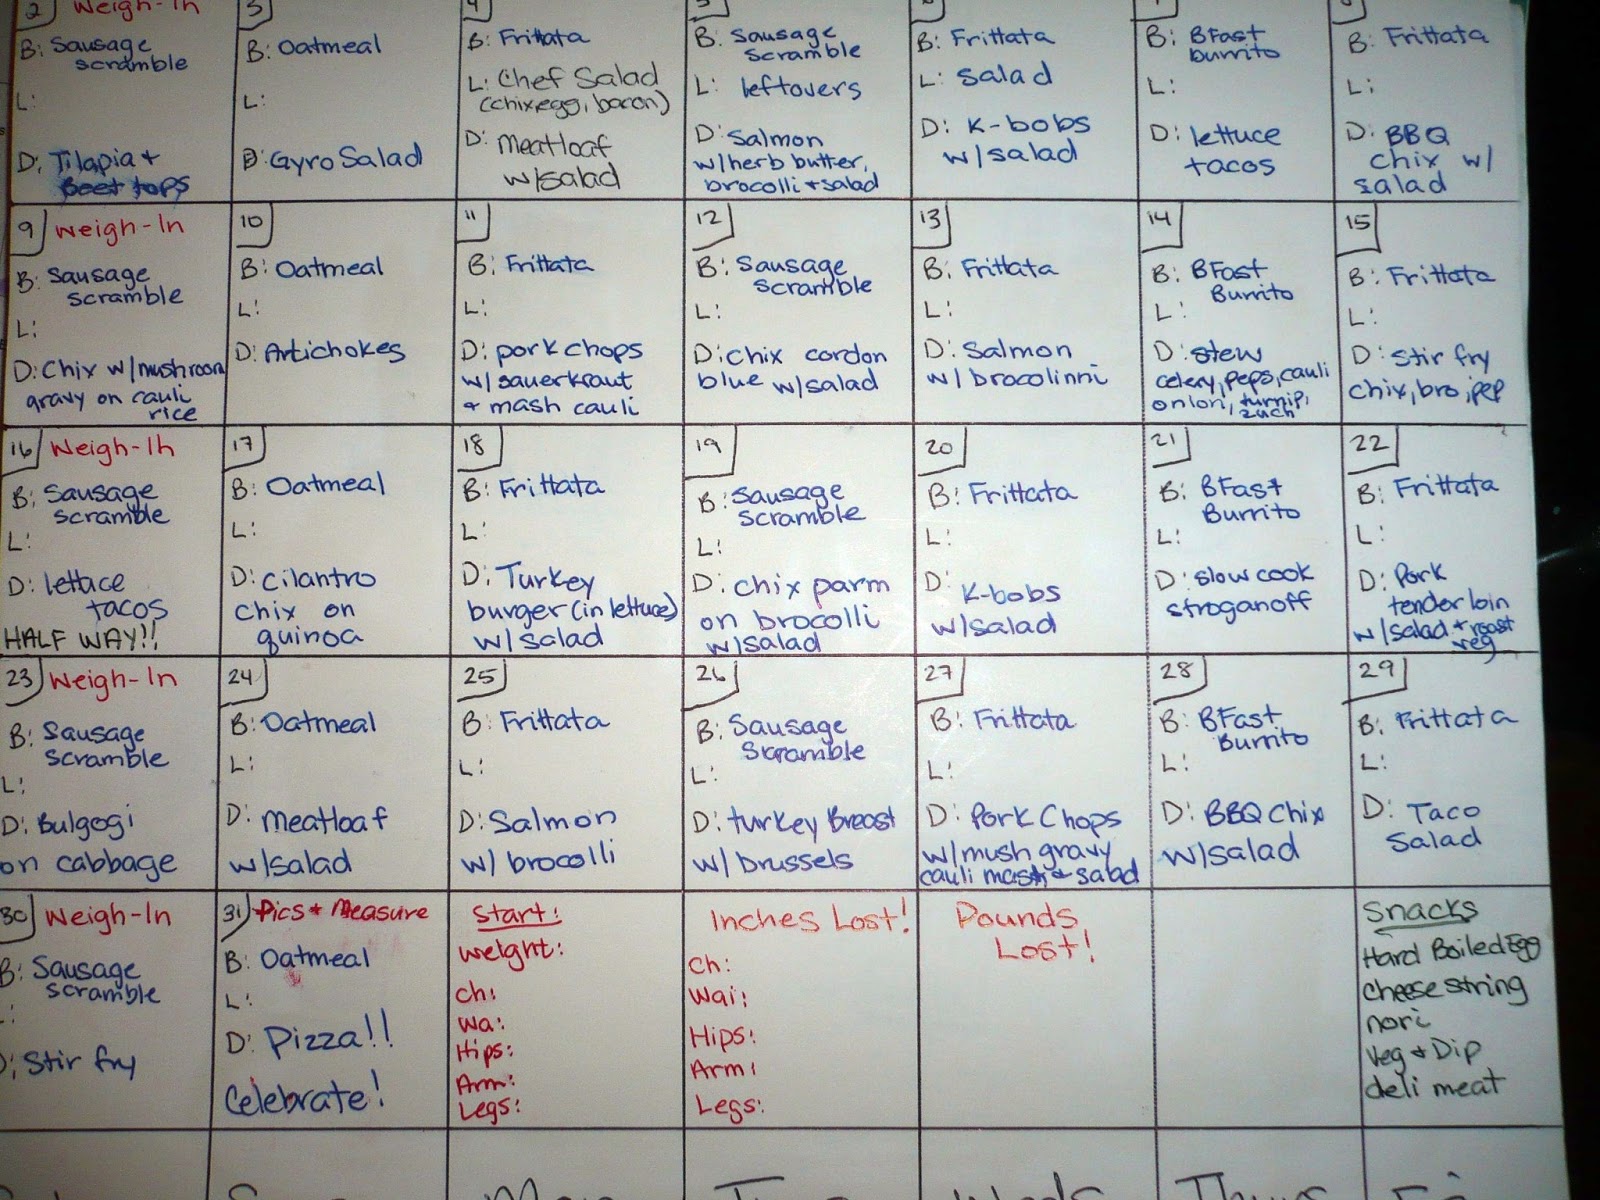 2 Weigh-In
B: Sausage
scramble
L:
D: Tilapia +
Beet tops
3
B: Oatmeal
L:
D: Gyro Salad
4
B: Frittata
L: Chef Salad
(chix, egg, bacon)
D: Meatloaf
w/salad
5
B: Sausage
scramble
L: leftovers
D: Salmon
w/herb butter,
brocolli + salad
6
B: Frittata
L: Salad
D: K-bobs
w/salad
7
B: BFast
burrito
L:
D: lettuce
tacos
8
B: Frittata
L:
D: BBQ
chix w/
salad
9 Weigh-In
B: Sausage
scramble
L:
D: Chix w/mushroom
gravy on cauli
rice
10
B: Oatmeal
L:
D: Artichokes
11
B: Frittata
L:
D: pork chops
w/sauerkraut
+ mash cauli
12
B: Sausage
scramble
L:
D: Chix cordon
blue w/salad
13
B: Frittata
L:
D: Salmon
w/brocolinni
14
B: BFast
Burrito
L:
D: stew
celery, peps, cauli
onion, turnip,
zuch
15
B: Frittata
L:
D: Stir fry
chix, bro, pep
16 Weigh-In
B: Sausage
scramble
L:
D: lettace
tacos
HALF WAY!!
17
B: Oatmeal
L:
D: cilantro
chix on
quinoa
18
B: Frittata
L:
D: Turkey
burger (in lettuce)
w/salad
19
B: Sausage
Scramble
L:
D: chix parm
on brocolli
w/salad
20
B: Frittata
L:
D:
K-bobs
w/salad
21
B: BFast
Burrito
L:
D: slow cook
stroganoff
22
B: Frittata
L:
D: Pork
tenderloin
w/salad + roast
veg
23 Weigh-In
B: Sausage
scramble
L:
D: Bulgogi
on cabbage
24
B: Oatmeal
L:
D: Meatloaf
w/salad
25
B: Frittata
L:
D: Salmon
w/ brocolli
26
B: Sausage
Scramble
L:
D: turkey Breast
w/brussels
27
B: Frittata
L:
D: Pork Chops
w/mush gravy
cauli mash + salad
28
B: BFast
Burrito
L:
D: BBQ Chix
w/salad
29
B: Frittata
L:
D: Taco
Salad
30 Weigh-In
B: Sausage
scramble
L:
D: Stir fry
31 Pics + Measure
B: Oatmeal
L:
D: Pizza!!
Celebrate!
Start:
Weight:
Ch:
Wa:
Hips:
Arm:
Legs:
Inches Lost!
Ch:
Wai:
Hips:
Arm:
Legs:
Pounds
Lost!
Snacks
Hard Boiled Egg
Cheese string
nori
Veg + Dip
deli meat